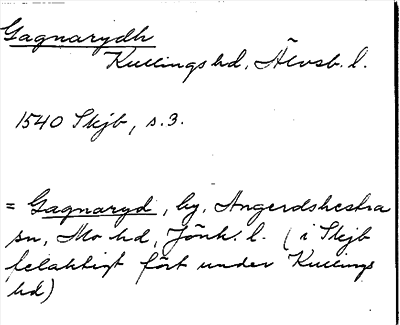 Gagnarydh
Kullings hd, Älvsb. l.
1540 Skjb, s. 3.
= Gagnaryd, by, Angerdshestra
sn, Mo hd, Jönk. l. (i Skjb
felaktigt fört under Kullings
hd)